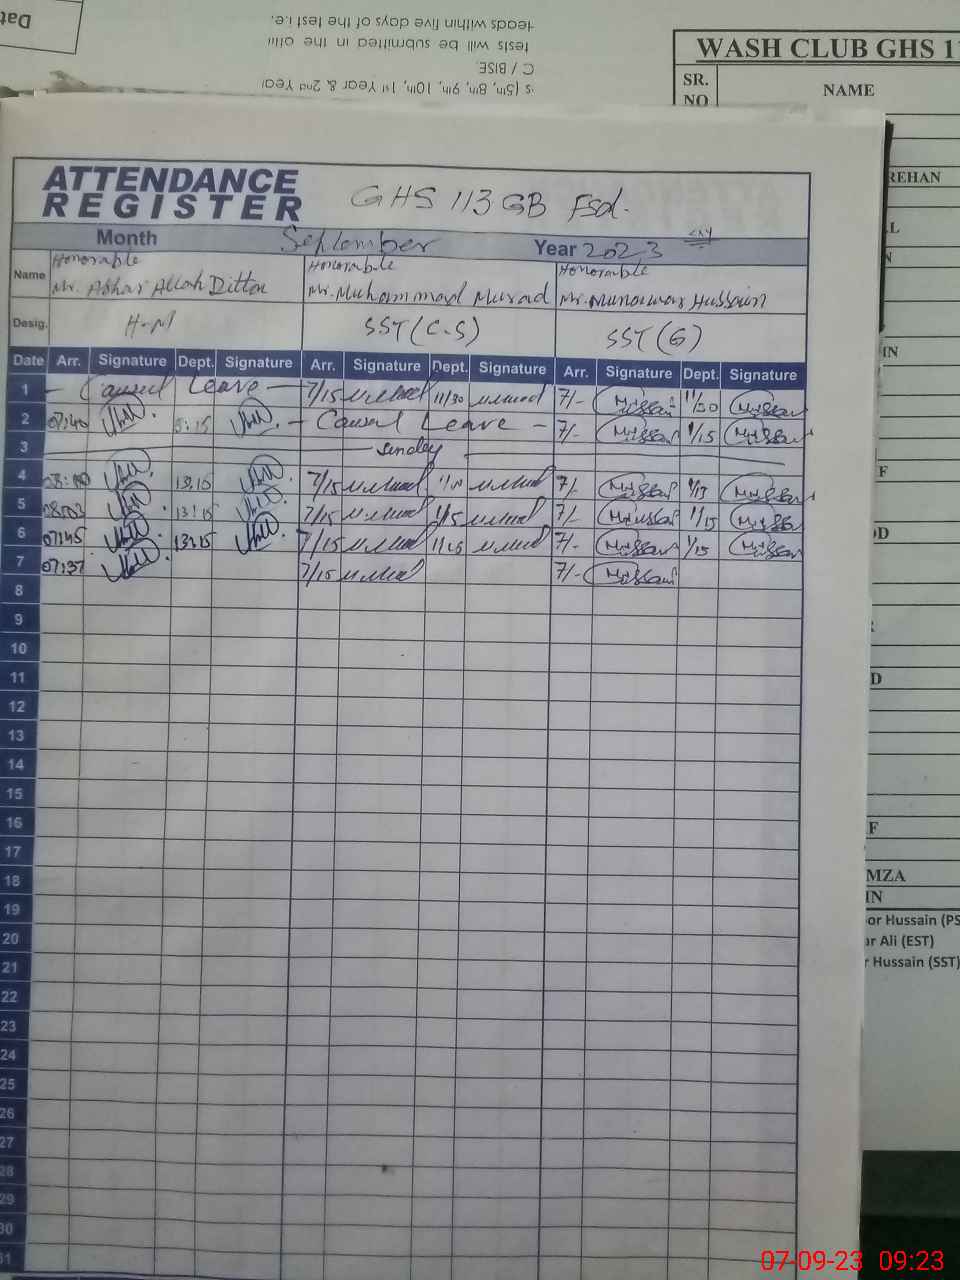 Dat
heads within five days of the test i.e.
tests will be submitted in the offi
C / BISE.
s (5th, 8th, 9th, 10th, 1st Year & 2nd Year
WASH CLUB GHS 11
SR. NO NAME
REHAN
ATTENDANCE
REGISTER
GHS 113 GB Fsd.
Month September Year 2023
Name Honorable Honorable Honorable
Mr. Allah Ditta Mr. Muhammad Murad Mr. Munawar Hussain
Desig. H-M SST (C-S) SST (G)
Date Arr. Signature Dept. Signature Arr. Signature Dept. Signature Arr. Signature Dept. Signature
1 - Causul Leave - 7/15 11/30 7/- M.Hussain 11/30 M.Hussain
2 07:40 - Causul Leave - 7/- M.Hussain 1/15 M.Hussain
3 Sunday
4 13:15 7/15 7/- M.Hussain M.Hussain
5 13:15 7/15 1/15 7/- M.Hussain 1/15 M.Hussain
6 07:45 13:15 7/15 7/- M.Hussain 1/15 M.Hussain
7 07:37 7/15 7/- M.Hussain
8
9
10
11
12
13
14
15
16
17
18
19
20
21
22
23
24
25
26
27
28
29
30
31
IN
F
D
F
MZA
IN
or Hussain (PS
ar Ali (EST)
r Hussain (SST)
07-09-23 09:23